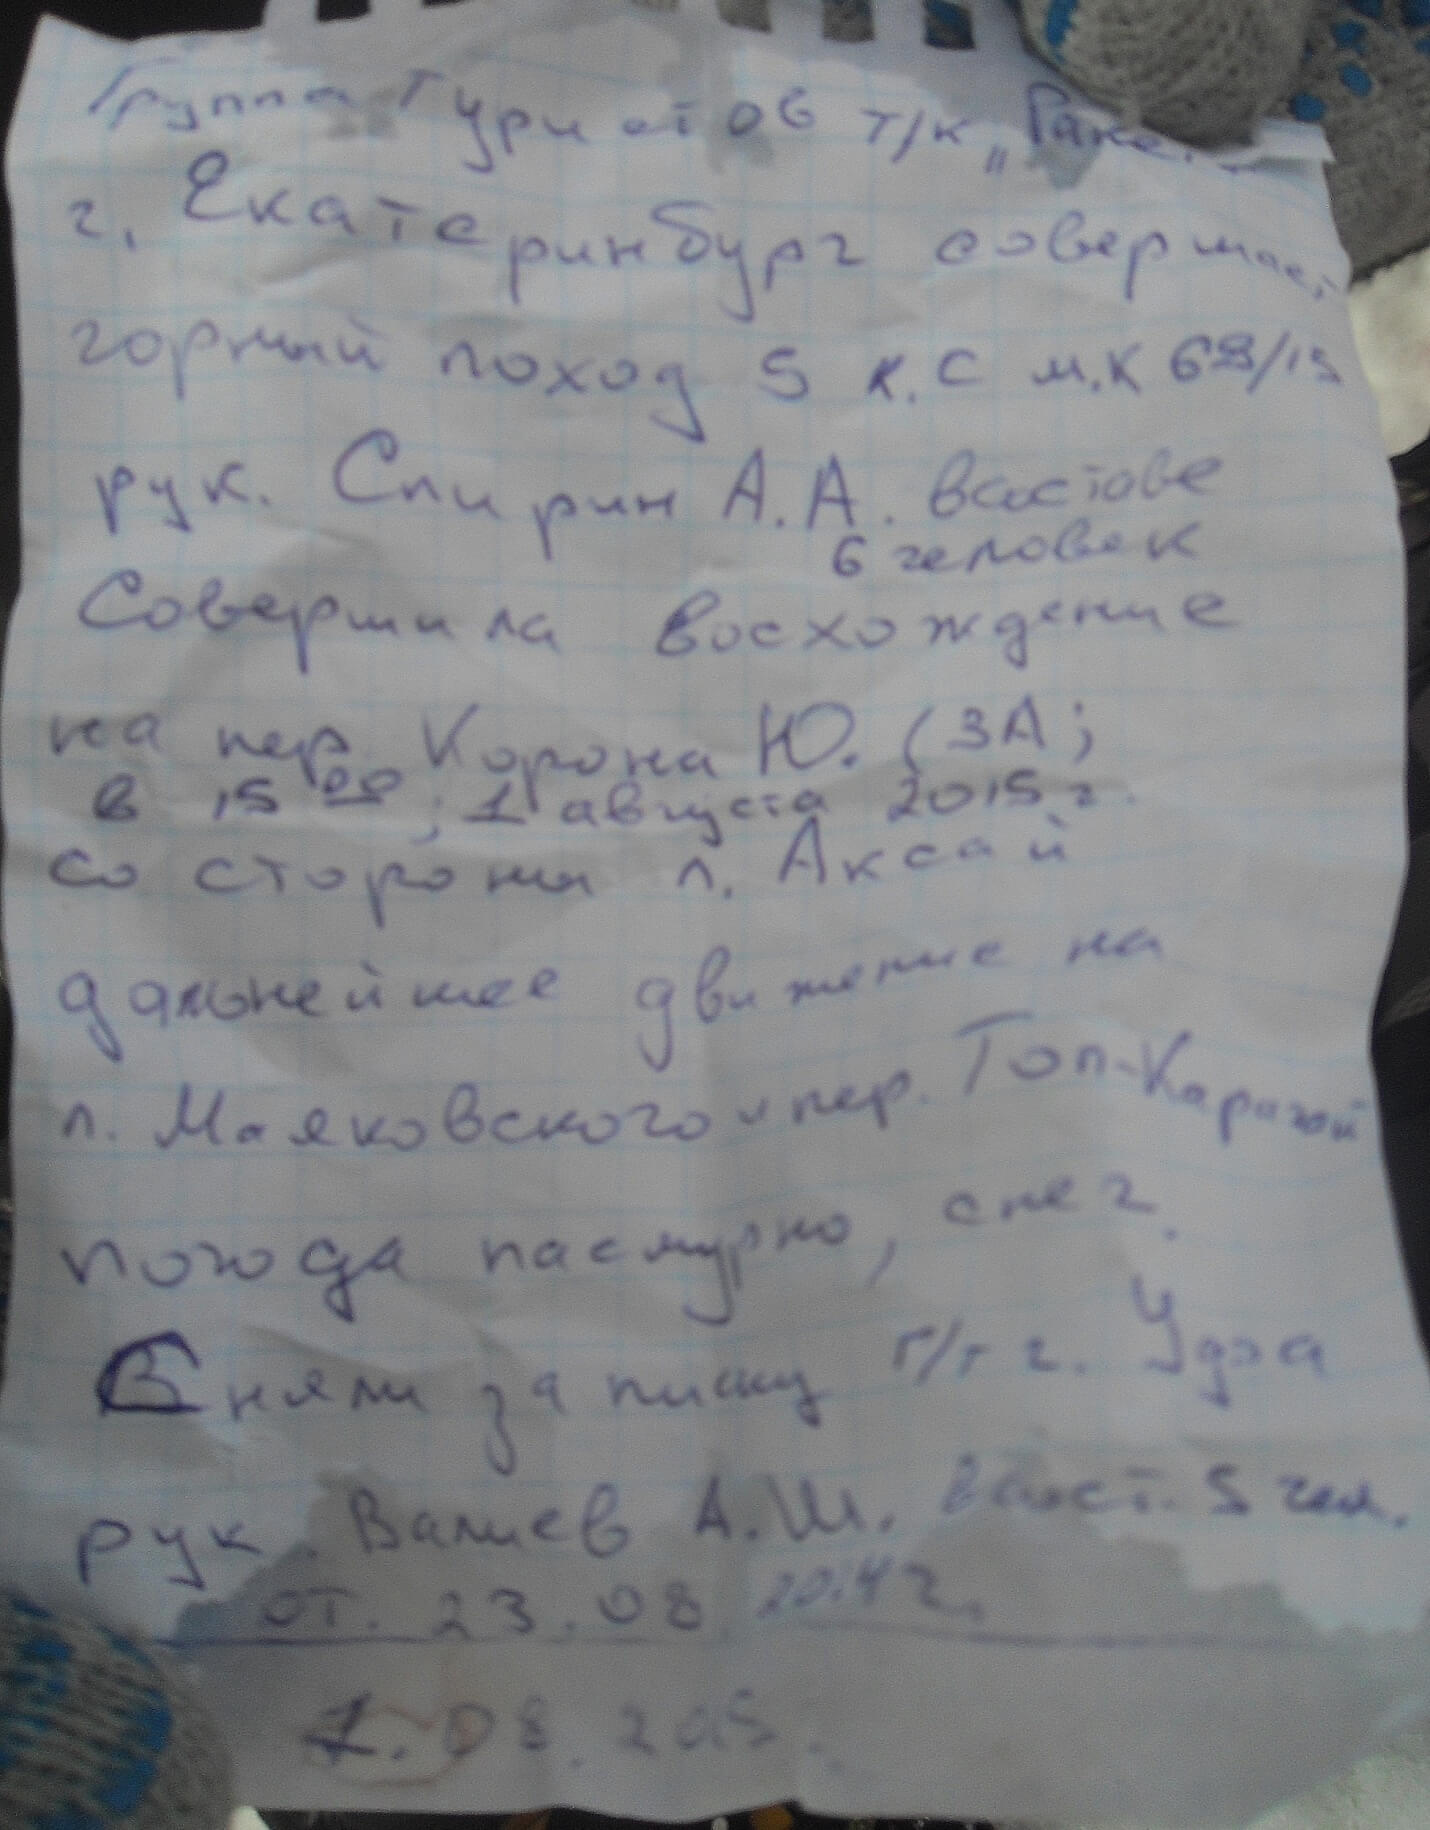 Группа Туристов т/к „Ракета
г. Екатеринбург совершает
горный поход 5 к.с м.к 69/15
рук. Спирин А.А. всоставе
6 человек
Совершила восхождение
на пер. Корона Ю. (3А;
в 15 00 ; 1 августа 2015 г.
со стороны л. Аксай
дальнейшее движение на
л. Маяковского и пер. Топ-Карагай
погода пасмурно, снег.
Сняли записку г/т г. Удэа
рук. Валиев А.Ш. всост. 5 чел.
от. 23.08 2014 г.
1.08.2015.